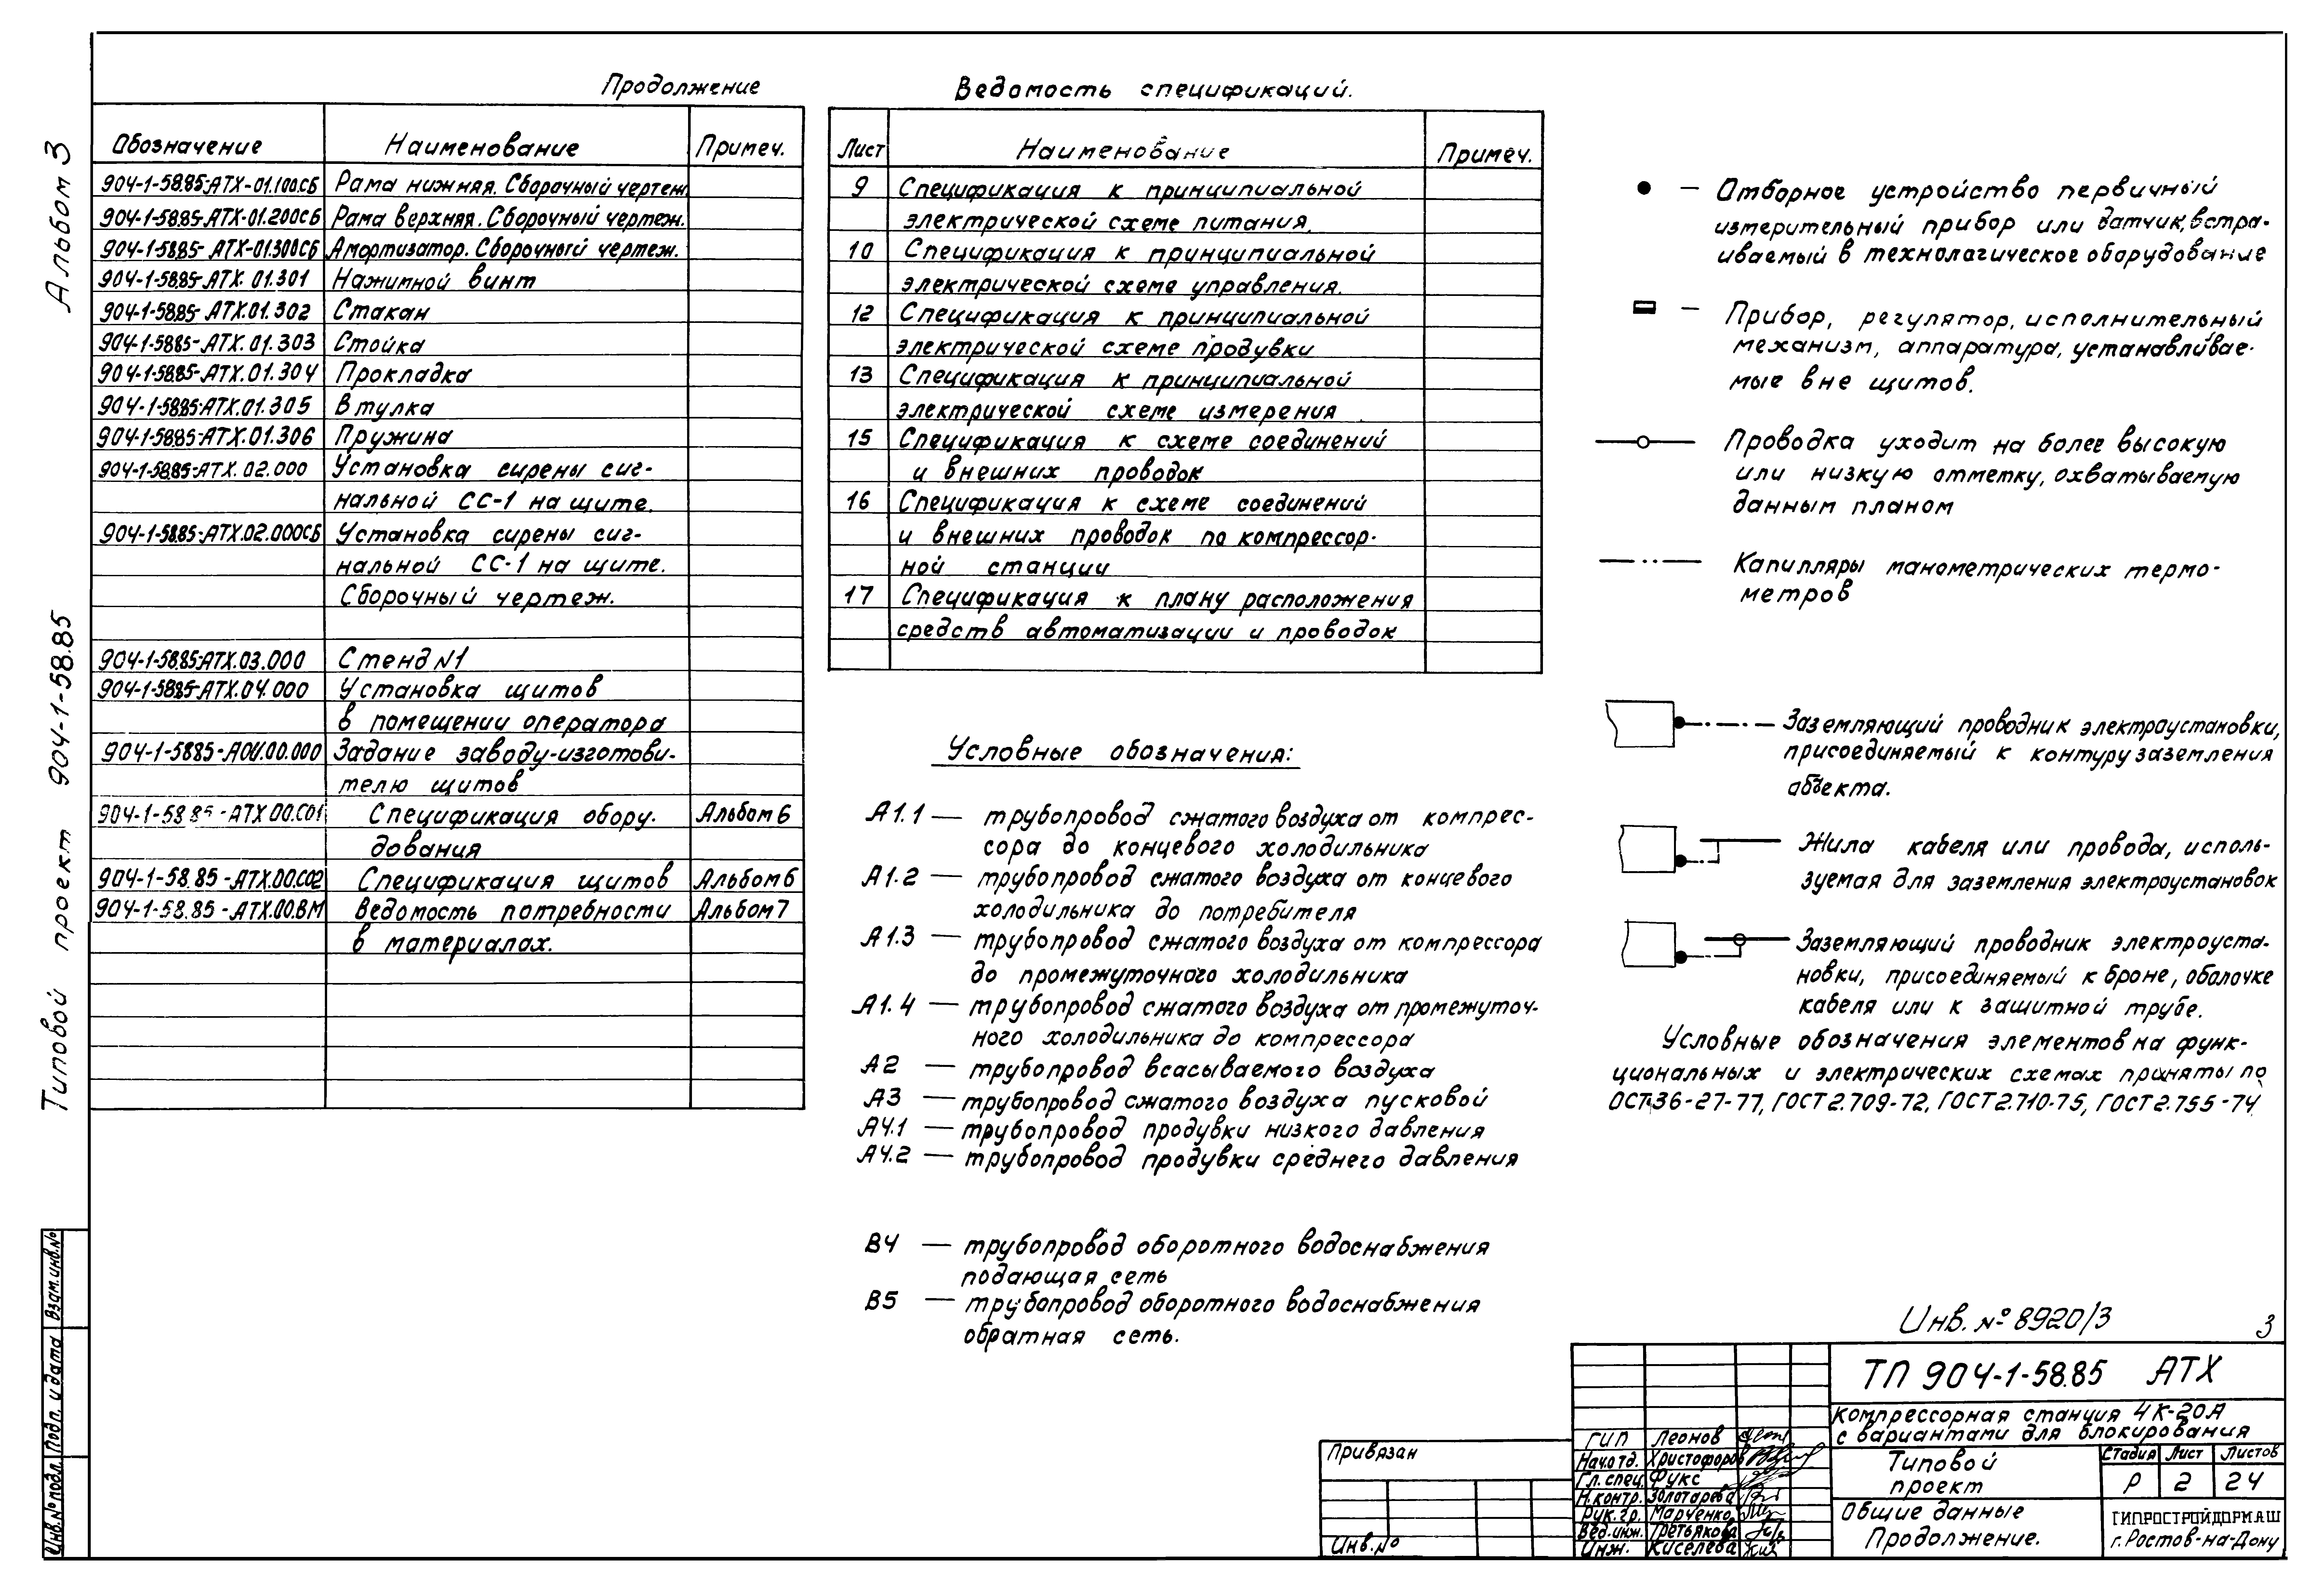 Альбом 3
Типовой проект 904-1-58.85
Продолжение
Обозначение Наименование Примеч.
904-1-58.85-АТХ-01.100.СБ Рама нижняя. Сборочный чертеж
904-1-58.85-АТХ-01.200СБ Рама верхняя. Сборочный чертеж.
904-1-58.85-АТХ-01.300СБ Амортизатор. Сборочный чертеж.
904-1-58.85-АТХ.01.301 Нажимной винт
904-1-58.85-АТХ.01.302 Стакан
904-1-58.85-АТХ.01.303 Стойка
904-1-58.85-АТХ.01.304 Прокладка
904-1-58.85-АТХ.01.305 Втулка
904-1-58.85-АТХ.01.306 Пружина
904-1-58.85-АТХ.02.000 Установка сирены сиг-
нальной СС-1 на щите.
904-1-58.85-АТХ.02.000СБ Установка сирены сиг-
нальной СС-1 на щите.
Сборочный чертеж.
904-1-58.85-АТХ.03.000 Стенд N1
904-1-58.85-АТХ.04.000 Установка щитов
в помещении оператора
904-1-5885-АОИ.00.000 Задание заводу-изготови-
телю щитов
904-1-58.85-АТХ.00.СО1 Спецификация обору- Альбом 6
дования
904-1-58.85-АТХ.00.СО2 Спецификация щитов Альбом 6
904-1-58.85-АТХ.00.ВМ Ведомость потребности Альбом 7
в материалах.
Ведомость спецификаций.
Лист Наименование Примеч.
9 Спецификация к принципиальной
электрической схеме питания.
10 Спецификация к принципиальной
электрической схеме управления.
12 Спецификация к принципиальной
электрической схеме продувки
13 Спецификация к принципиальной
электрической схеме измерения
15 Спецификация к схеме соединений
и внешних проводок
16 Спецификация к схеме соединений
и внешних проводок по компрессор-
ной станции
17 Спецификация к плану расположения
средств автоматизации и проводок
Условные обозначения:
А1.1 — трубопровод сжатого воздуха от компрес-
сора до концевого холодильника
А1.2 — трубопровод сжатого воздуха от концевого
холодильника до потребителя
А1.3 — трубопровод сжатого воздуха от компрессора
до промежуточного холодильника
А1.4 — трубопровод сжатого воздуха от промежуточ-
ного холодильника до компрессора
А2 — трубопровод всасываемого воздуха
А3 — трубопровод сжатого воздуха пусковой
А4.1 — трубопровод продувки низкого давления
А4.2 — трубопровод продувки среднего давления
В4 — трубопровод оборотного водоснабжения
подающая сеть
В5 — трубопровод оборотного водоснабжения
обратная сеть.
— Отборное устройство первичный
измерительный прибор или датчик, встра-
иваемый в технологическое оборудование
— Прибор, регулятор, исполнительный
механизм, аппаратура, устанавливае-
мые вне щитов.
Проводка уходит на более высокую
или низкую отметку, охватываемую
данным планом
Капилляры манометрических термо-
метров
Заземляющий проводник электроустановки,
присоединяемый к контуру заземления
объекта.
Жила кабеля или провода, исполь-
зуемая для заземления электроустановок
Заземляющий проводник электроуста-
новки, присоединяемый к броне, оболочке
кабеля или к защитной трубе.
Условные обозначения элементов на функ-
циональных и электрических схемах приняты по
ОСТ36-27-77, ГОСТ2.709-72, ГОСТ2.710-75, ГОСТ2.755-74
Инв. № 8920/3 3
ТП 904-1-58.85 АТХ
Компрессорная станция 4К-20А
с вариантами для блокирования
Типовой
проект
Стадия Лист Листов
Р 2 24
Общие данные
Продолжение.
ГИПРОСТРОЙДОРМАШ
г. Ростов-на-Дону
ГИП Леонов
Нач.отд. Христофоров
Гл.спец. Фукс
Н.контр. Золотарева
Рук.гр. Марченко
Вед.инж. Третьякова
Инж. Киселева
Привязан
Инв.№
Взам.инв.№
Подп. и дата
Инв.№ подл.